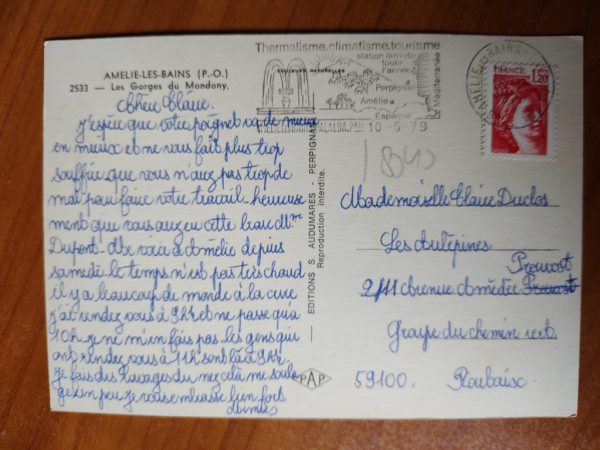 AMELIE-LES-BAINS (P.-O.)
2533 — Les Gorges du Mondony.
Thermalisme.climatisme.tourisme
station ouverte
toute
l'année
DOULEURS RHUMATISMES
Perpignan
Amélie
Espagne
Méditerranée
10-5-79
AMELIE-LES-BAINS
FRANCE
1,20
Chère Claire.
J'espère que votre poignet va de mieux
en mieux et ne vous fait plus trop
souffrir que vous n'avez pas trop de
mal pour faire votre travail heureuse
ment que vous avez eu cette beau Mr
Dupont. Me voici à Amélie depuis
samedi le temps n'est pas très chaud
il y a beaucoup de monde à la cure
j'ai rendez vous à 9h et ne passe qu'à
10h je ne m'en fais pas les gens qui
ont rendez vous à 11h sont là à 9h.
je fais des lavages du nez cela me soula
ge un peu je vous embrasse bien fort
EDITIONS S. AUDUMARES - PERPIGNAN
Reproduction Interdite.
PAP
Mademoiselle Claire Duclos
Les Aubépines
Prouvost
2/11 Avenue Amédée
Groupe du chemin vert.
59100. Roubaix